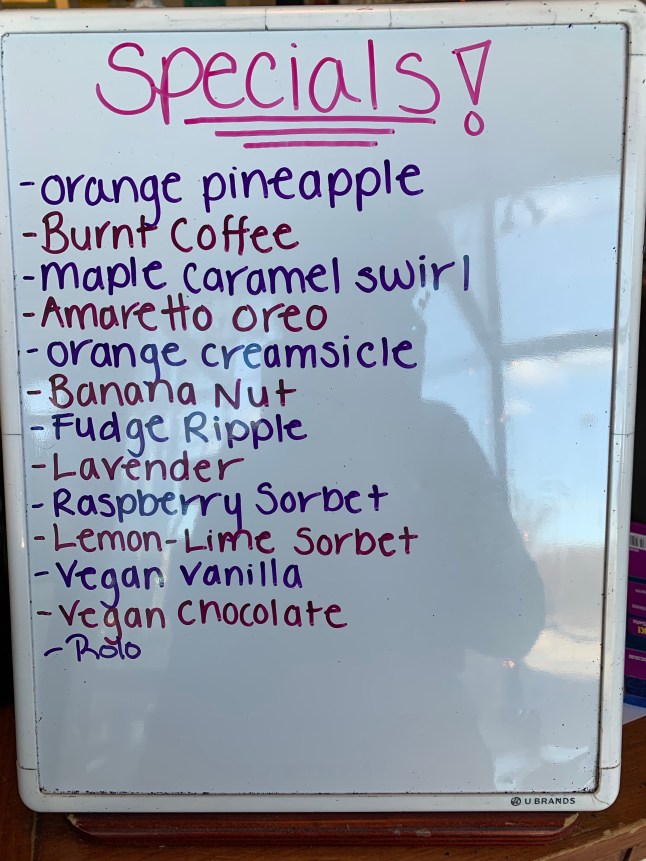 Specials!
-orange pineapple
-Burnt Coffee
-maple caramel swirl
-Amaretto oreo
-orange creamsicle
-Banana Nut
-Fudge Ripple
-Lavender
-Raspberry Sorbet
-Lemon-Lime Sorbet
-Vegan vanilla
-Vegan Chocolate
-Rolo
U BRANDS